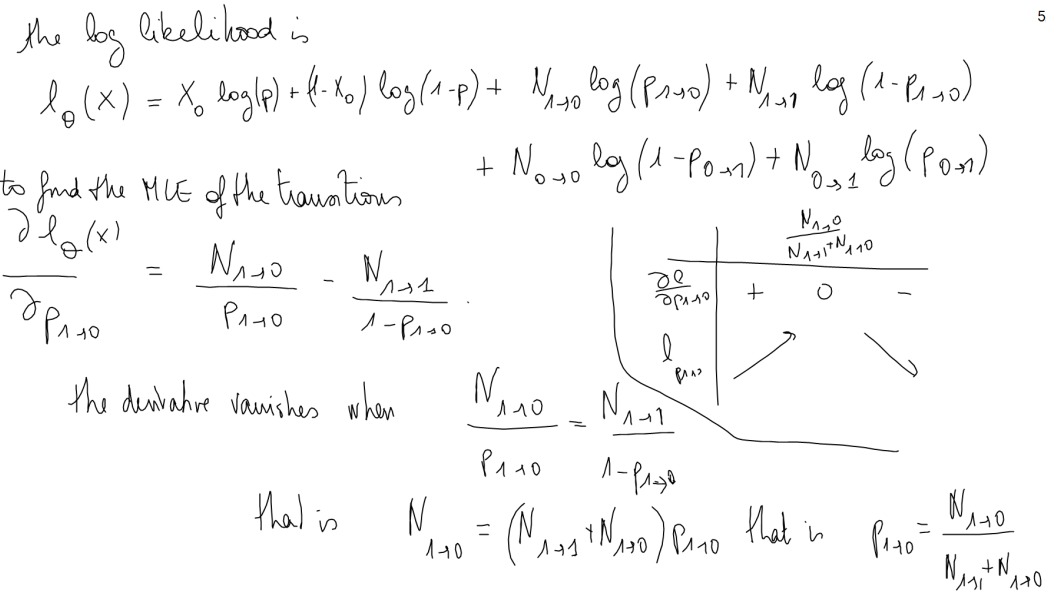 5
the log likelihood is
l_θ(X) = X₀ log(p) + (1-X₀) log(1-p) + N_{1→0} log(p_{1→0}) + N_{1→1} log(1-p_{1→0})
+ N_{0→0} log(1-p_{0→1}) + N_{0→1} log(p_{0→1})
to find the MLE of the transitions
∂l_θ(x)/∂p_{1→0} = N_{1→0}/p_{1→0} - N_{1→1}/(1-p_{1→0}).
N_{1→0}/(N_{1→1}+N_{1→0})
∂l/∂p_{1→0} + 0 -
l_{p_{1→0}} ↗ ↘
the derivative vanishes when N_{1→0}/p_{1→0} = N_{1→1}/(1-p_{1→0})
that is N_{1→0} = (N_{1→1}+N_{1→0}) p_{1→0} that is p_{1→0} = N_{1→0}/(N_{1→1}+N_{1→0})